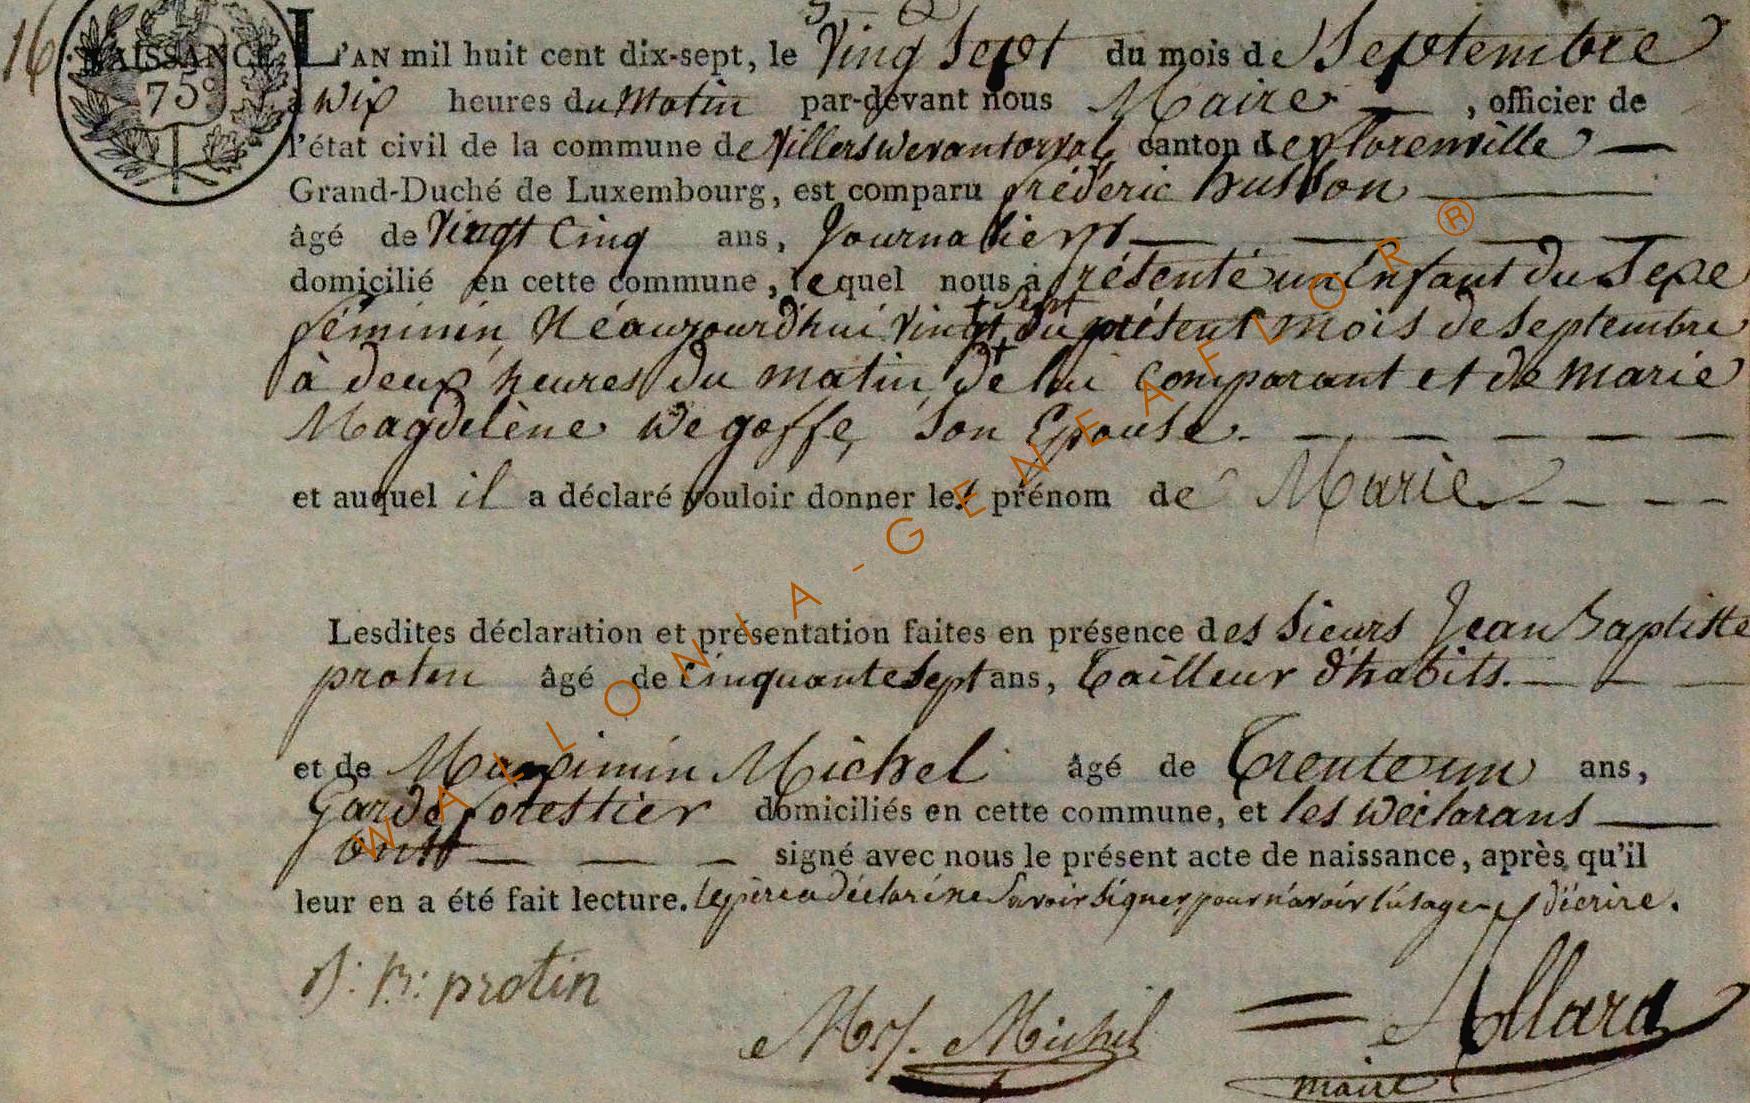 16. NAISSANCE. L'AN mil huit cent dix-sept, le Ving Sept du mois de Septembre
75c
à Dix heures du Matin par-devant nous Maire, officier de
l'état civil de la commune de Villers Devant orval, canton de florenville
Grand-Duché de Luxembourg, est comparu fréderic husson
âgé de Vingt Cinq ans, Journalier
domicilié en cette commune, lequel nous a présenté un Enfant du Sexe
féminin, Né aujourd'hui Vingt sept du présent mois de Septembre
à deux heures du matin, de lui Comparant et de Marie
Magdelène Degoffe, Son Epouse.
et auquel il a déclaré vouloir donner le prénom de Marie
Lesdites déclaration et présentation faites en présence des Sieurs Jean Baptiste
protin âgé de Cinquante Sept ans, Tailleur d'habits.
et de Maximin Michel âgé de Trente un ans,
Garde forestier domiciliés en cette commune, et les Déclarans
ont signé avec nous le présent acte de naissance, après qu'il
leur en a été fait lecture. Le père a déclaré ne Savoir Signer pour n'avoir l'usage d'écrire.
J: B: protin
Michel
Allard
maire
WALLONIA-GENEAFLOR ®